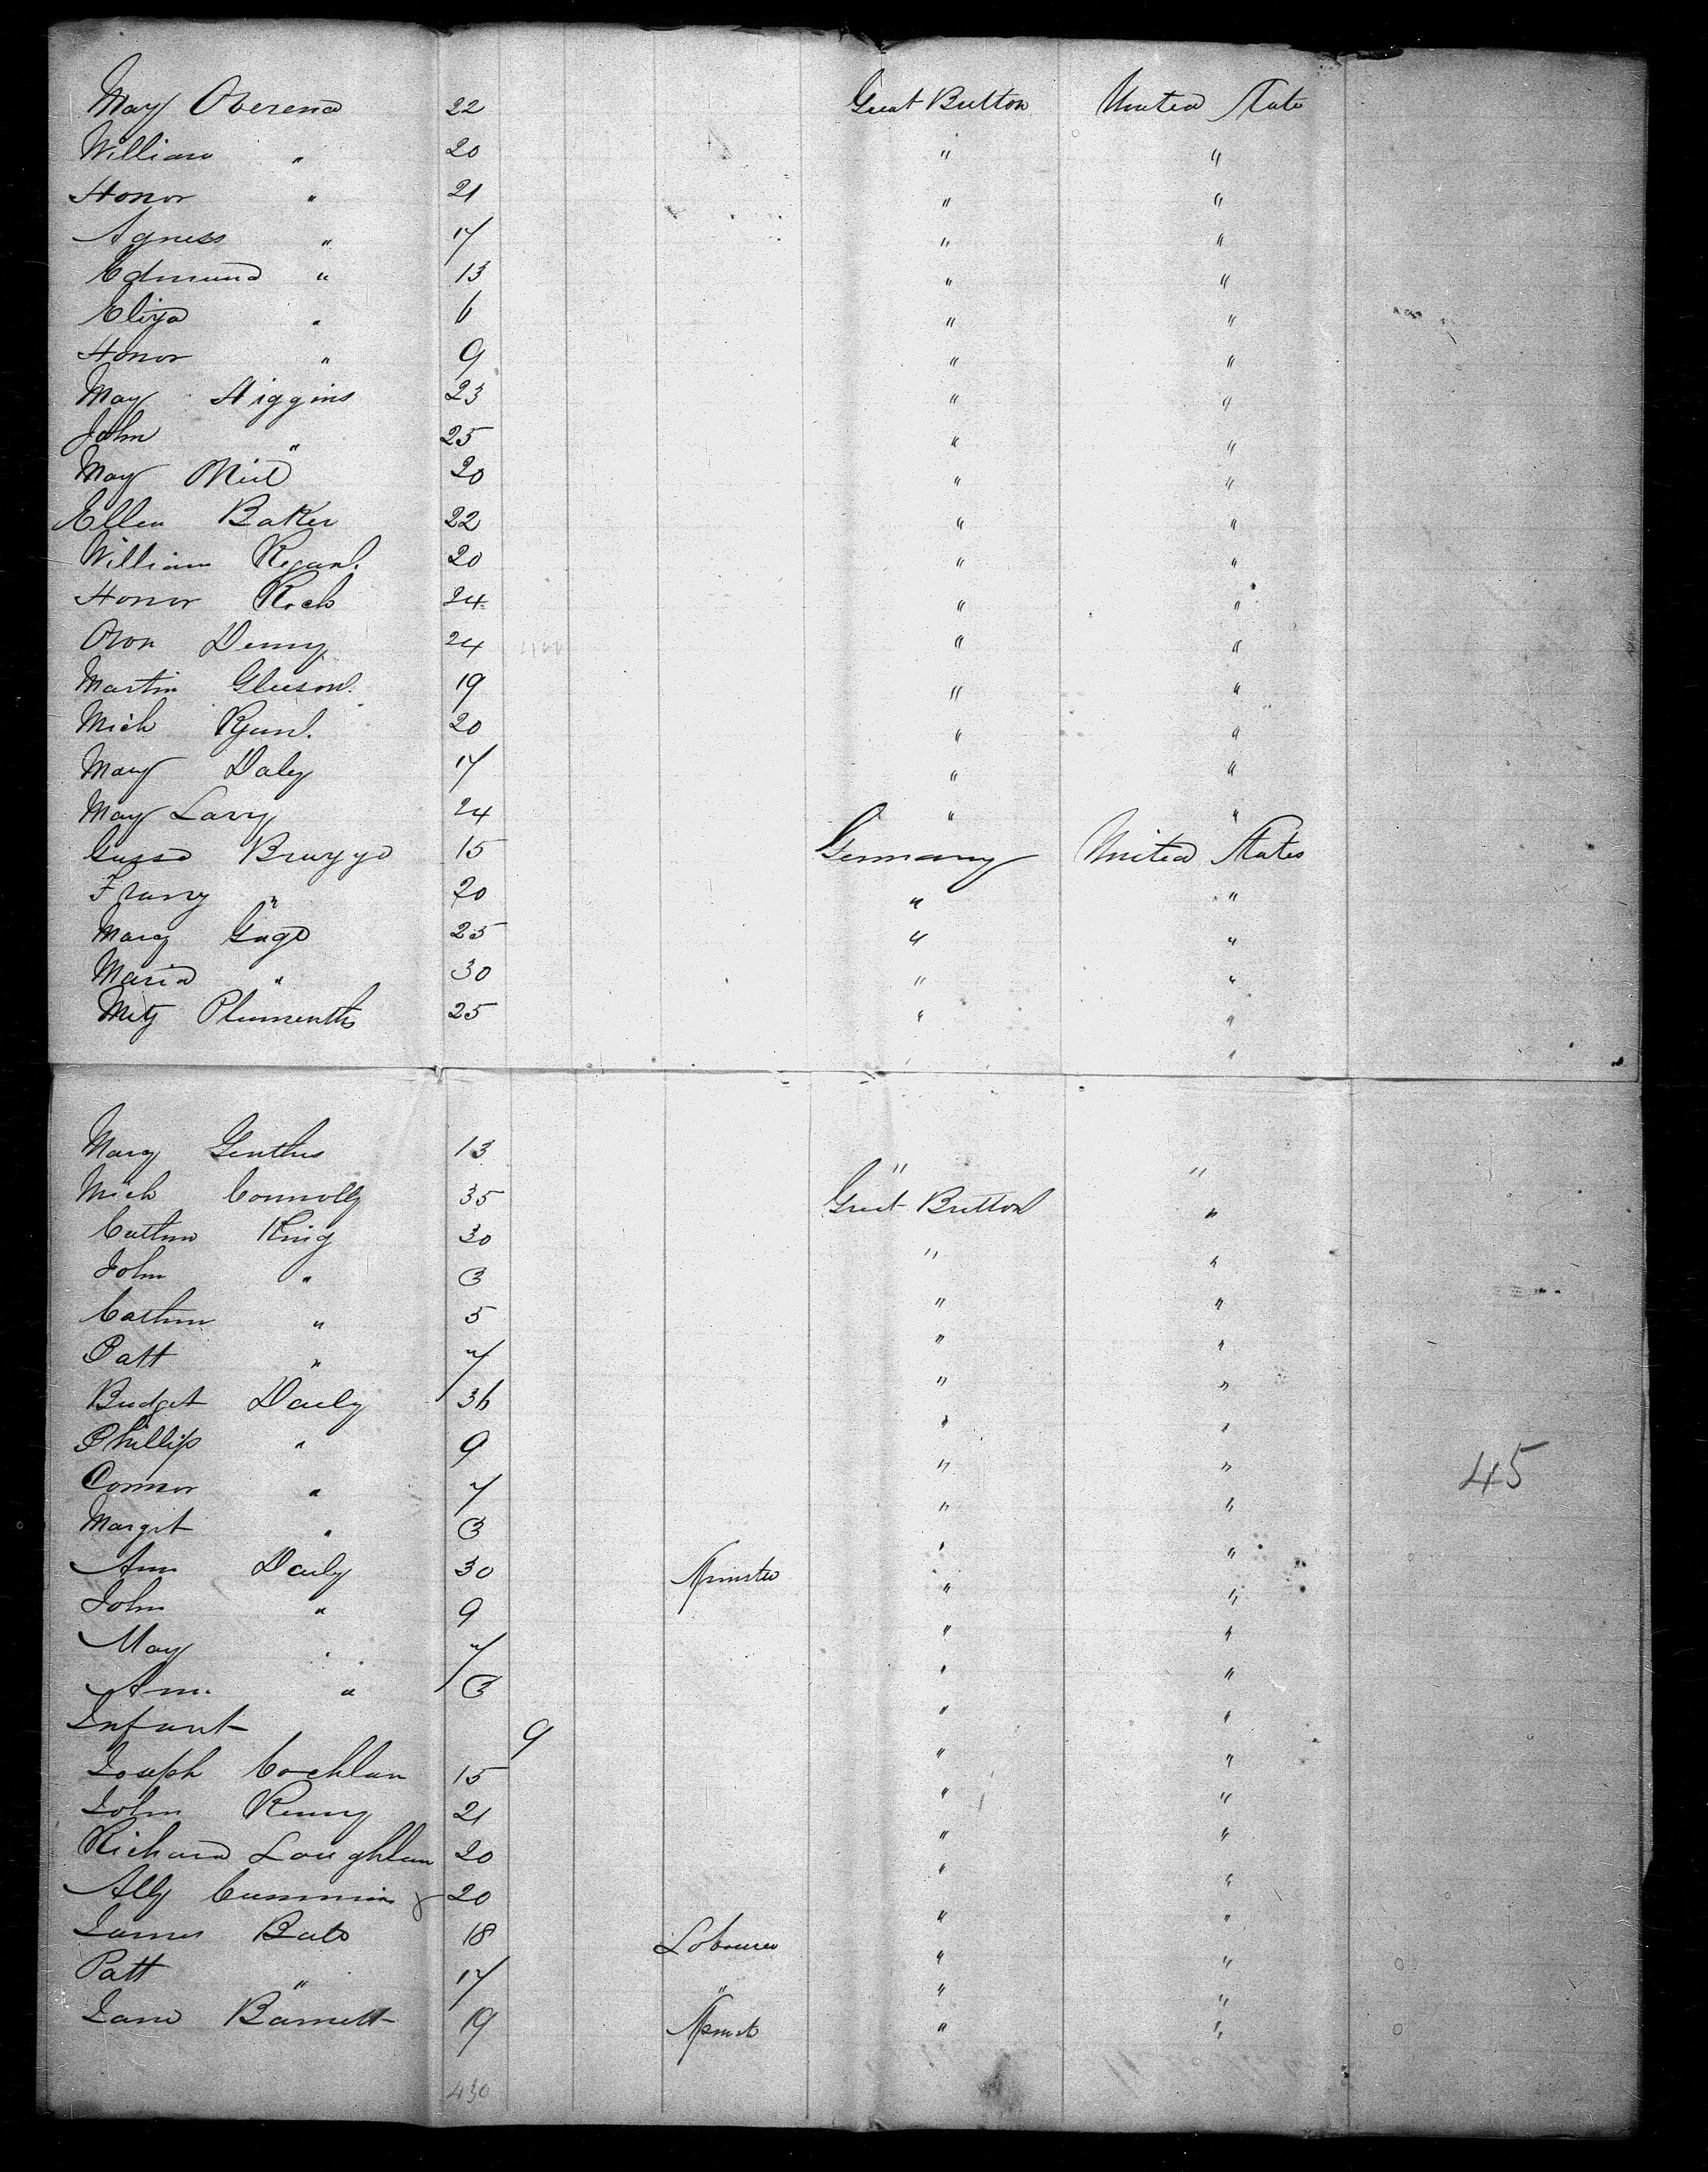 May Overend 22 Great Britton United State
William " 20 " "
Honor " 21 " "
Agness " 17 " "
Edmund " 13 " "
Eliza " 6 " "
Honor " 9 " "
May Higgins 23 " "
John " 25 " "
May Neil 20 " "
Ellen Baker 22 " "
William Regan 20 " "
Honor Roch 24 " "
Denny 24 " "
Martin Gleeson 19 " "
Mich Ryan 20 " "
Mary Daley 17 " "
May Lavry 24 " "
15 Germany United States
" 20 " "
Mary Gage 25 " "
Maria " 30 " "
Metz 25 " "
"
Mary Genthes 13 " "
Mich Connolly 35 Great Britton "
Cathrn King 30 " "
John " 3 " "
Cathrn " 5 " "
Patt " 7 " "
Bridget Daily 36 " "
Phillip " 9 " "
Connor " 7 " " 45
Margrt " 3 " "
Ann Daily 30 " "
John " 9 " "
May " 7 " "
Ann " 3 " "
Infant 9 " "
Joseph Cochlan 15 " "
John Kenny 21 " "
Richard Loughlan 20 " "
Ally Cummins 20 " "
James Bats 18 Labourer " "
Patt " 17 " " "
Jane Barnett 19 " "
430